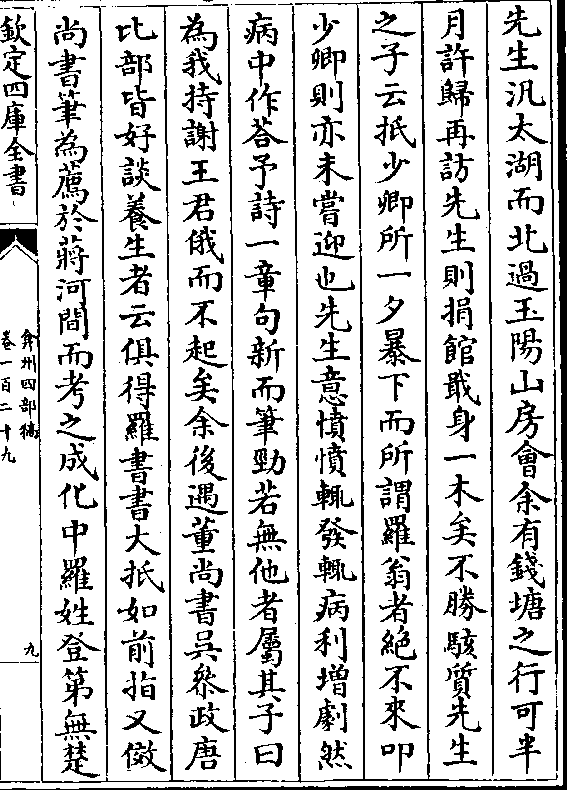 先生汎太湖而北過玉陽山房會余有錢塘之行可半
月許歸再訪先生則捐館戢身一木矣不勝駭質先生
之子云抵少卿所一夕暴下而所謂羅翁者絶不來叩
少卿則亦未嘗迎也先生意憤憤輒發輒病利增劇然
病中作荅予詩一章句新而筆勁若無他者屬其子曰
為我持謝王君俄而不起矣余後遇董尚書吳叅政唐
比部皆好談養生者云俱得羅書書大抵如前指又儆
尚書筆為薦於蔣河間而考之成化中羅姓登第無楚
欽定四庫全書
弇州四部稿
卷一百二十九
九